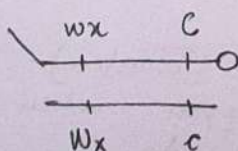 wx C
Wx c